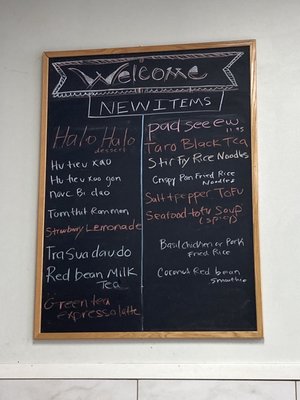 Welcome
NEW ITEMS
Halo Halo
dessert
Hu tieu xao
Hu tieu xao gon
nouc Bi dao
Tom thit Ramman
Strawberry Lemonade
Tra sua dau do
Red bean Milk
Tea
Green tea
expresso latte
pad seeew
11.95
Taro Black Tea
Stir Fry Rice Noodles
Crispy Pan Fried Rice
Noodles
Salt + pepper Tofu
Seafood tofu Soup
(spicy)
Basil chicken or Pork
Fried Rice
Coconut Red bean
smoothie